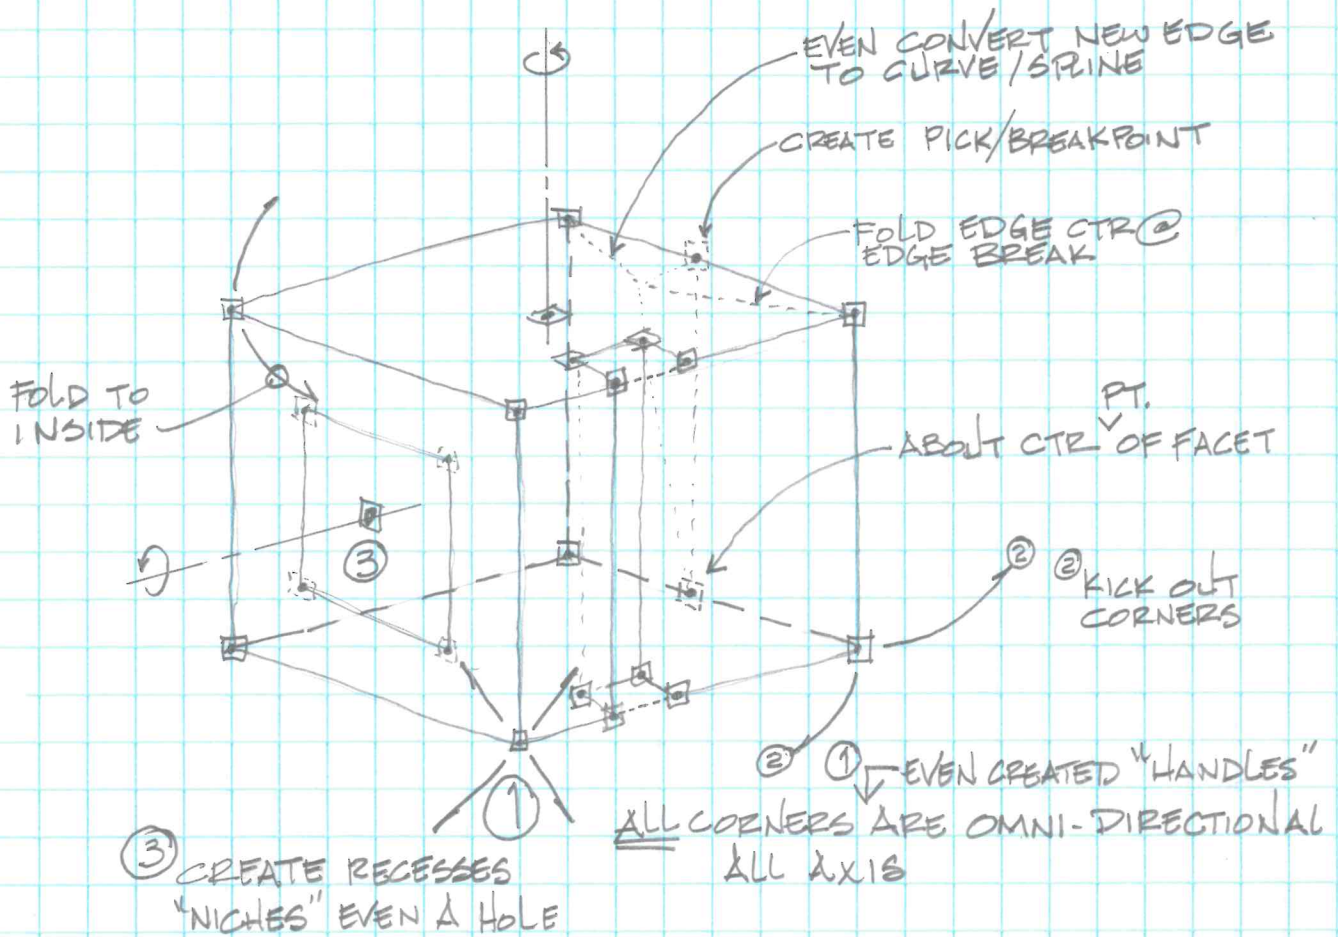 EVEN CONVERT NEW EDGE
TO CURVE/SPLINE
CREATE PICK/BREAKPOINT
FOLD EDGE CTR@
EDGE BREAK
FOLD TO
INSIDE
PT.
ABOUT CTR OF FACET
③
② ② KICK OUT
CORNERS
②
① EVEN CREATED "HANDLES"
①
ALL CORNERS ARE OMNI-DIRECTIONAL
ALL AXIS
③ CREATE RECESSES
"NICHES" EVEN A HOLE